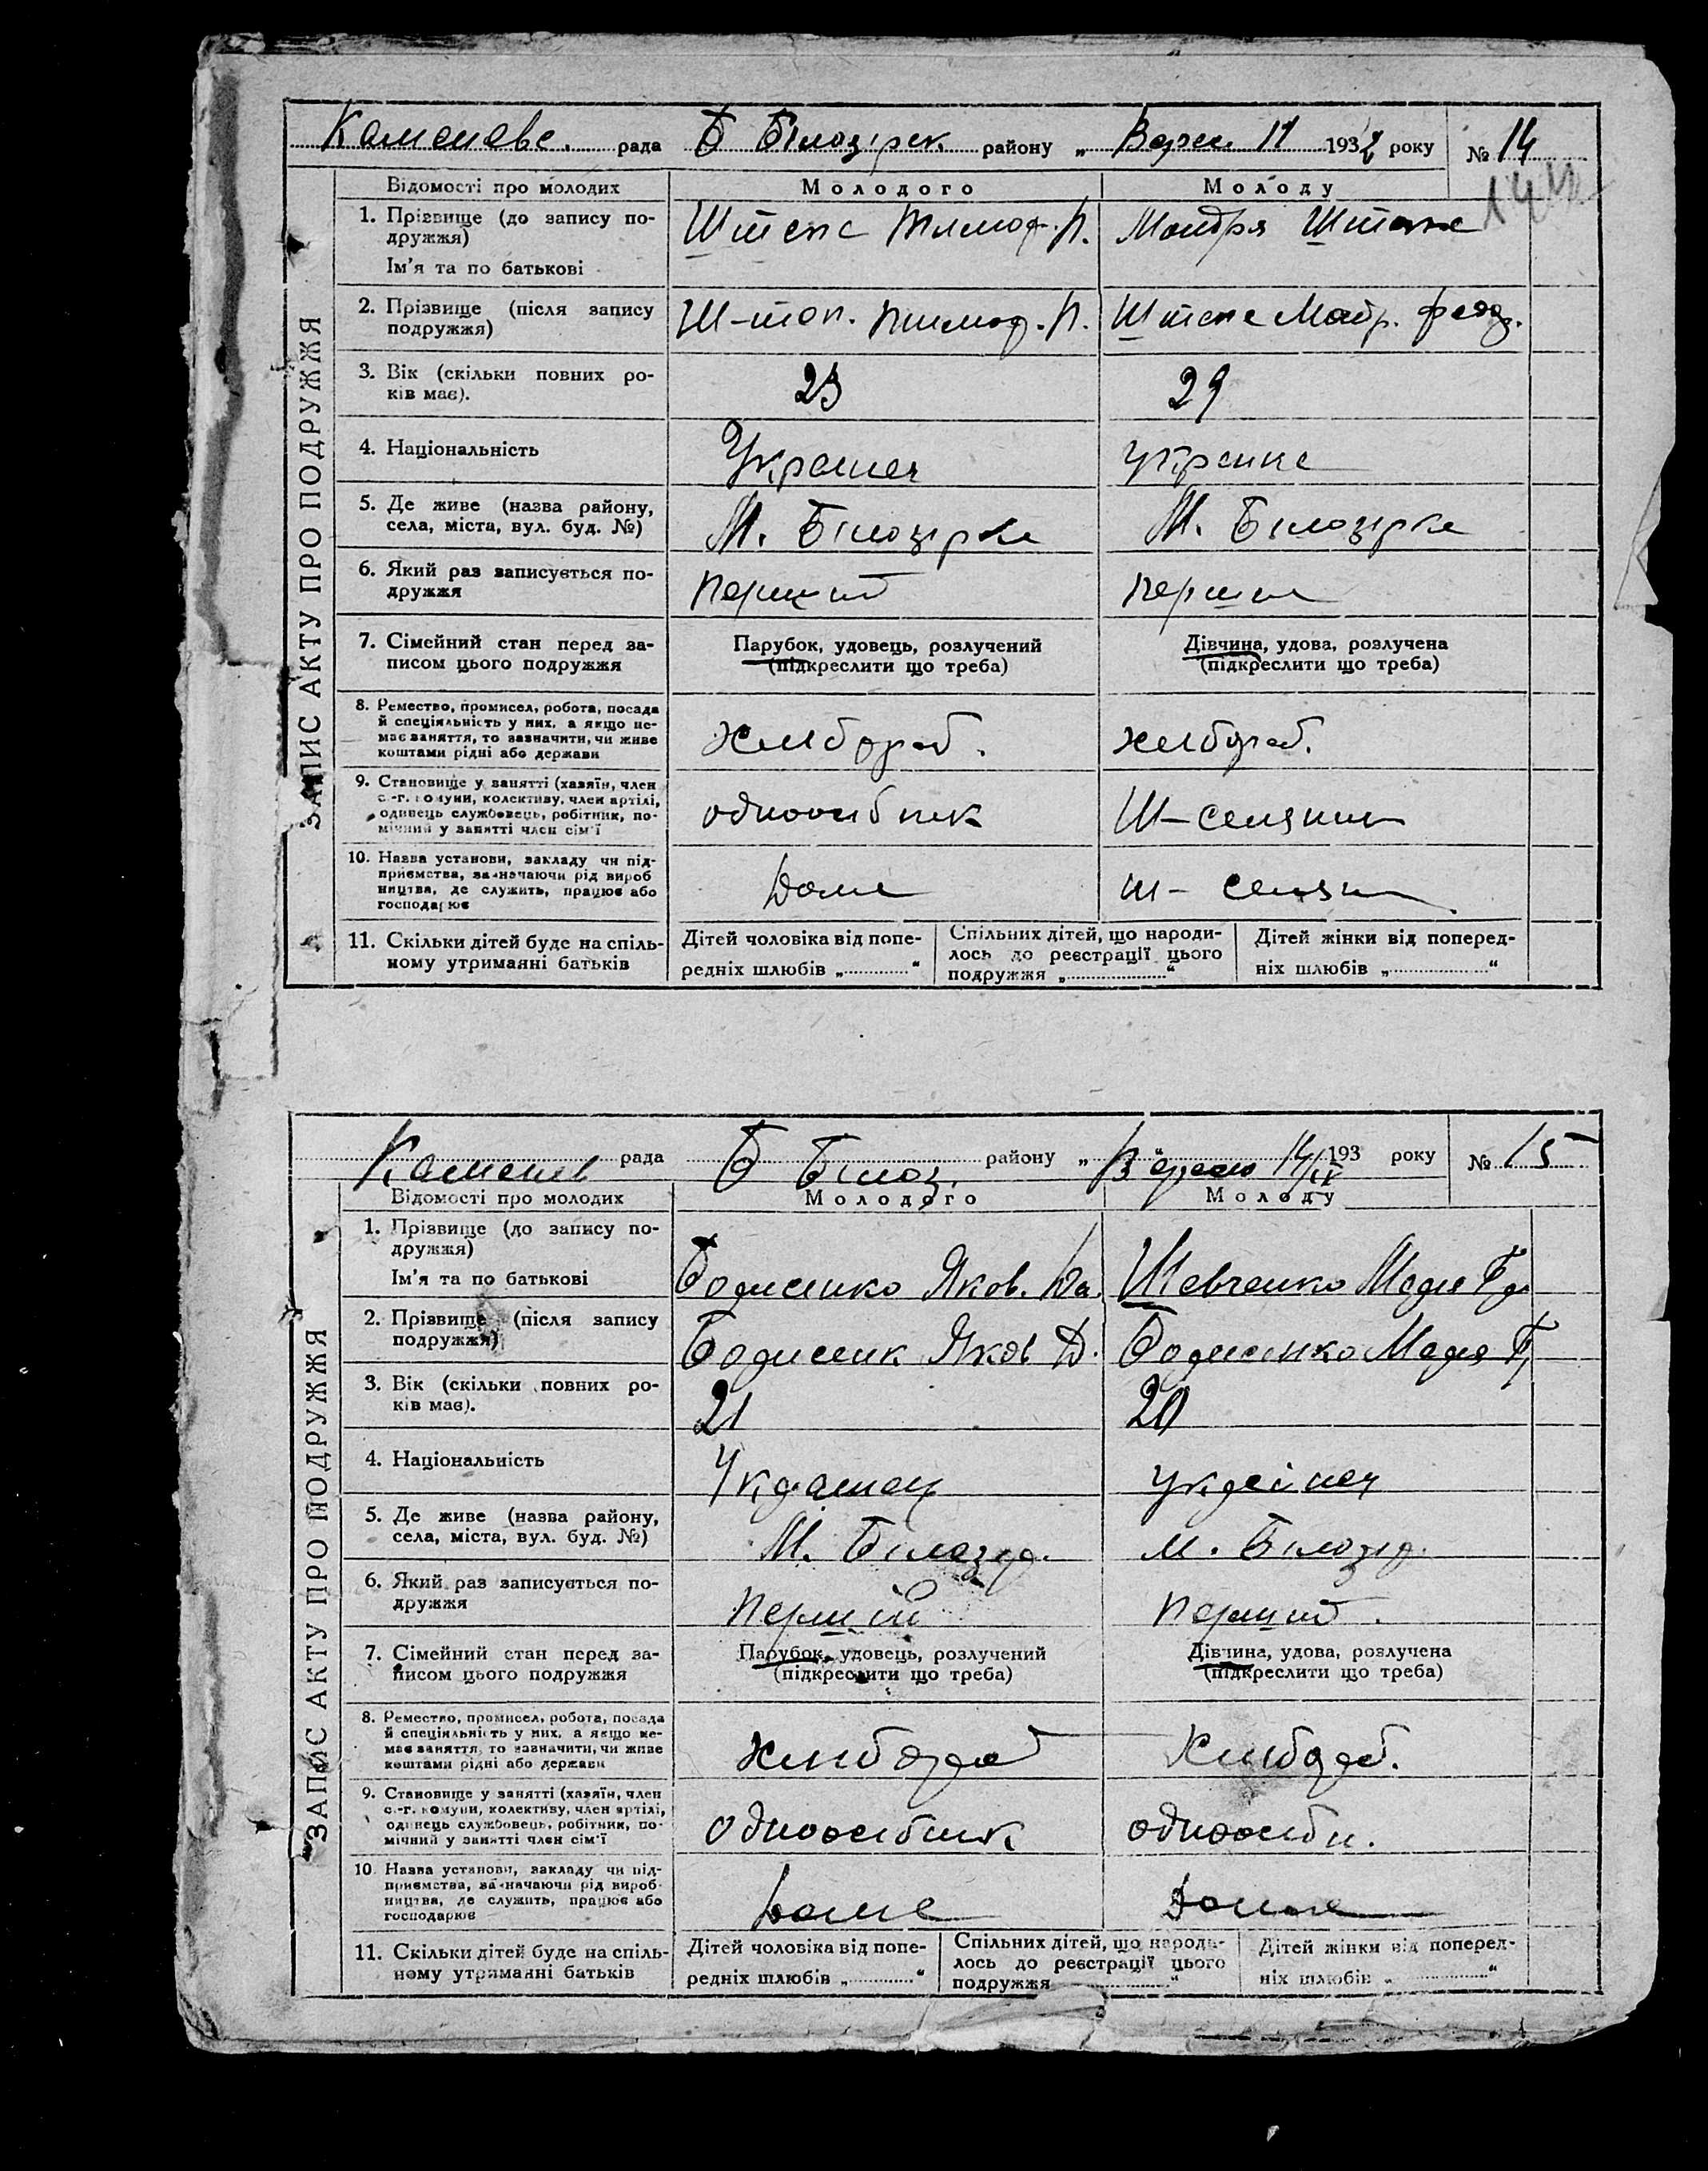 Каменеве. рада Б Білозірск району „ Верес 11 1932 року № 14
Відомості про молодих Молодого Молоду
1. Прізвище (до запису по-
дружжя)
Ім'я та по батькові
Штепа Тимоф. П. Мандря Штепа
2. Прізвище (після запису
подружжя)
Штеп. Тимоф. П. Штепа Мотр. Федор.
3. Вік (скільки повних ро-
ків має).
23 29
4. Національність
Українец українка
5. Де живе (назва району,
села, міста, вул. буд. №)
М. Білозірка М. Білозірка
6. Який раз записується по-
дружжя
Перший Перший
7. Сімейний стан перед за-
писом цього подружжя
Парубок, удовець, розлучений
(підкреслити що треба)
Дівчина, удова, розлучена
(підкреслити що треба)
8. Ремество, промисел, робота, посада
й спеціяльність у них, а якщо не-
має заняття, то зазначити, чи живе
коштами рідні або держави
хлібороб. хлібороб.
9. Становище у занятті (хазяїн, член
с.-г. комуни, колективу, член артілі,
одинець службовець, робітник, по-
мічний у занятті член сім'ї
одноосібник
10. Назва установи, закладу чи під-
приємства, зазначаючи рід вироб
ництва, де служить, працює або
господарює
Дома
11. Скільки дітей буде на спіль-
ному утриманні батьків
Дітей чоловіка від попе-
редніх шлюбів „ “
Спільних дітей, що народи-
лось до реєстрації цього
подружжя „ “
Дітей жінки від поперед-
ніх шлюбів „ “
ЗАПИС АКТУ ПРО ПОДРУЖЖЯ
Каменев рада Б Білоз. району „ Вересн 14/IX 193 року № 15
Відомості про молодих Молодого Молоду
1. Прізвище (до запису по-
дружжя)
Ім'я та по батькові
Борисенко Яков. Да. Шевченко Мария Гр
2. Прізвище (після запису
подружжя)
Борисенк Яков Д. Борисенко Мария Г,
3. Вік (скільки повних ро-
ків має).
21 20
4. Національність
Українец українец
5. Де живе (назва району,
села, міста, вул. буд. №)
М. Білозір. М. Білозір.
6. Який раз записується по-
дружжя
Перший Перший
7. Сімейний стан перед за-
писом цього подружжя
Парубок, удовець, розлучений
(підкреслити що треба)
Дівчина, удова, розлучена
(підкреслити що треба)
8. Ремество, промисел, робота, посада
й спеціяльність у них, а якщо не-
має заняття, то зазначити, чи живе
коштами рідні або держави
хлібороб хлібороб.
9. Становище у занятті (хазяїн, член
с.-г. комуни, колективу, член артілі,
одинець службовець, робітник, по-
мічний у занятті член сім'ї
одноосібник одноосібн.
10. Назва установи, закладу чи під-
приємства, зазначаючи рід вироб-
ництва, де служить, працює або
господарює
Дома Дома
11. Скільки дітей буде на спіль-
ному утриманні батьків
Дітей чоловіка від попе-
редніх шлюбів „ “
Спільних дітей, що народи-
лось до реєстрації цього
подружжя „ “
Дітей жінки від поперед-
ніх шлюбів „ “
ЗАПИС АКТУ ПРО ПОДРУЖЖЯ